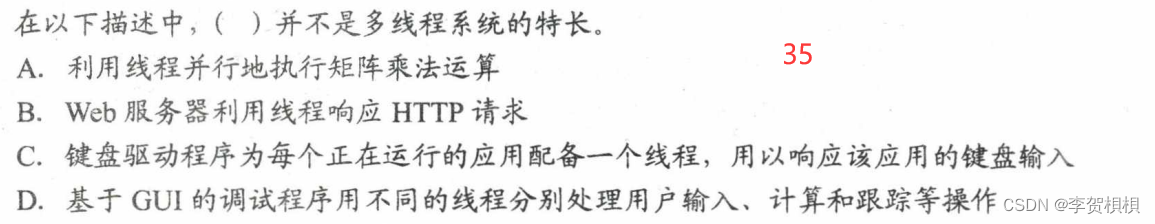 在以下描述中，（ ）并不是多线程系统的特长。
35
A. 利用线程并行地执行矩阵乘法运算
B. Web 服务器利用线程响应 HTTP 请求
C. 键盘驱动程序为每个正在运行的应用配备一个线程，用以响应该应用的键盘输入
D. 基于 GUI 的调试程序用不同的线程分别处理用户输入、计算和跟踪等操作
CSDN @李贺梖梖